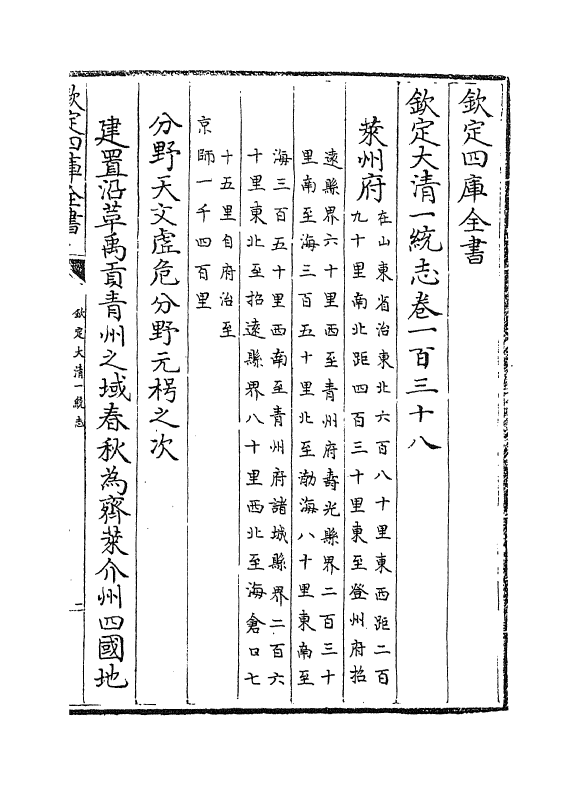 欽定四庫全書
欽定大清一統志卷一百三十八
萊州府
在山東省治東北六百八十里東西距二百
九十里南北距四百三十里東至登州府招
遠縣界六十里西至青州府壽光縣界二百三十
里南至海三百五十里北至渤海八十里東南至
海三百五十里西南至青州府諸城縣界二百六
十里東北至招遠縣界八十里西北至海倉口七
十五里自府治至
京師一千四百里
分野天文虛危分野元枵之次
建置沿革禹貢青州之域春秋為齊萊介州四國地
欽定四庫全書
欽定大清一統志
二